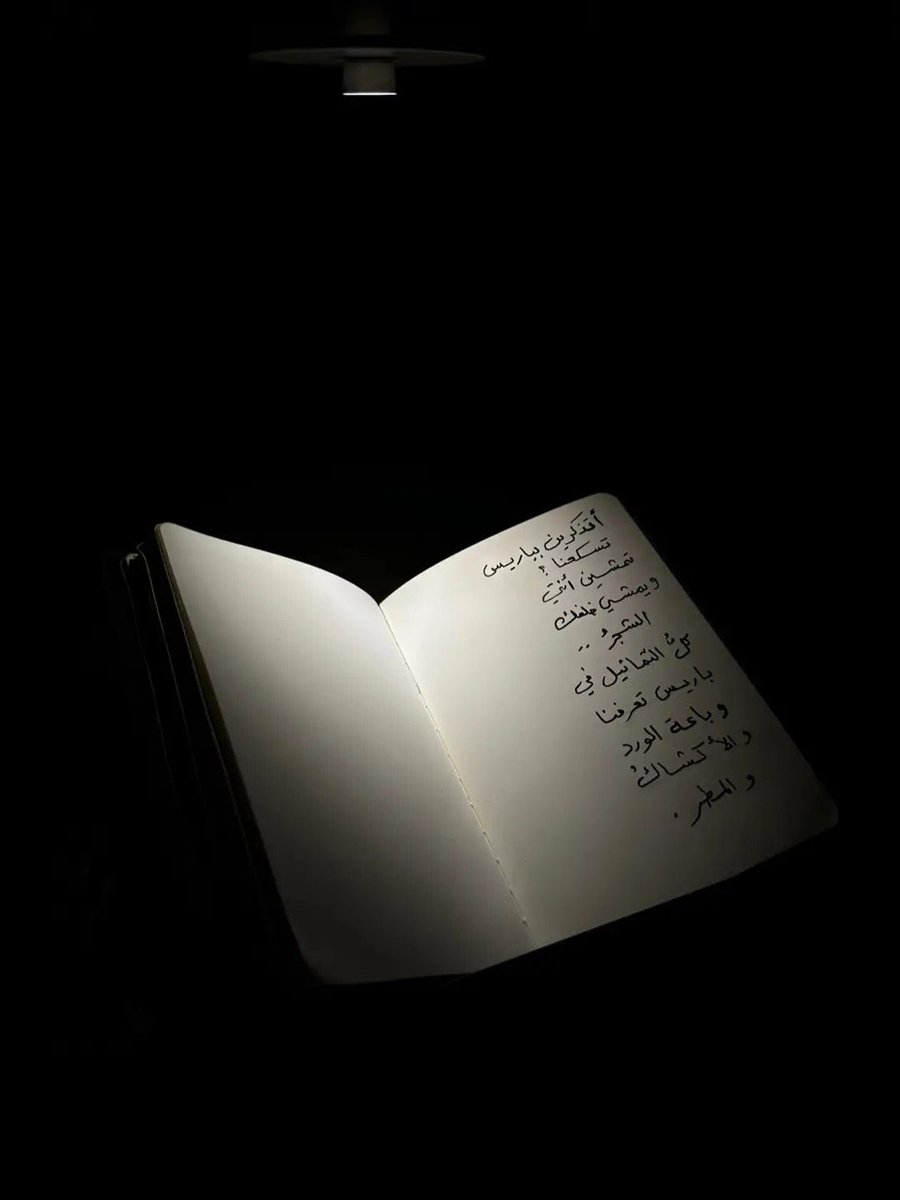 أتذكرين بباريس
تسكعنا ؟
تمشين أنتِ
ويمشي خلفك
الشجرُ ..
كلُّ التماثيل في
باريس تعرفنا
وباعة الورد
والأكشاكُ
والمطر .